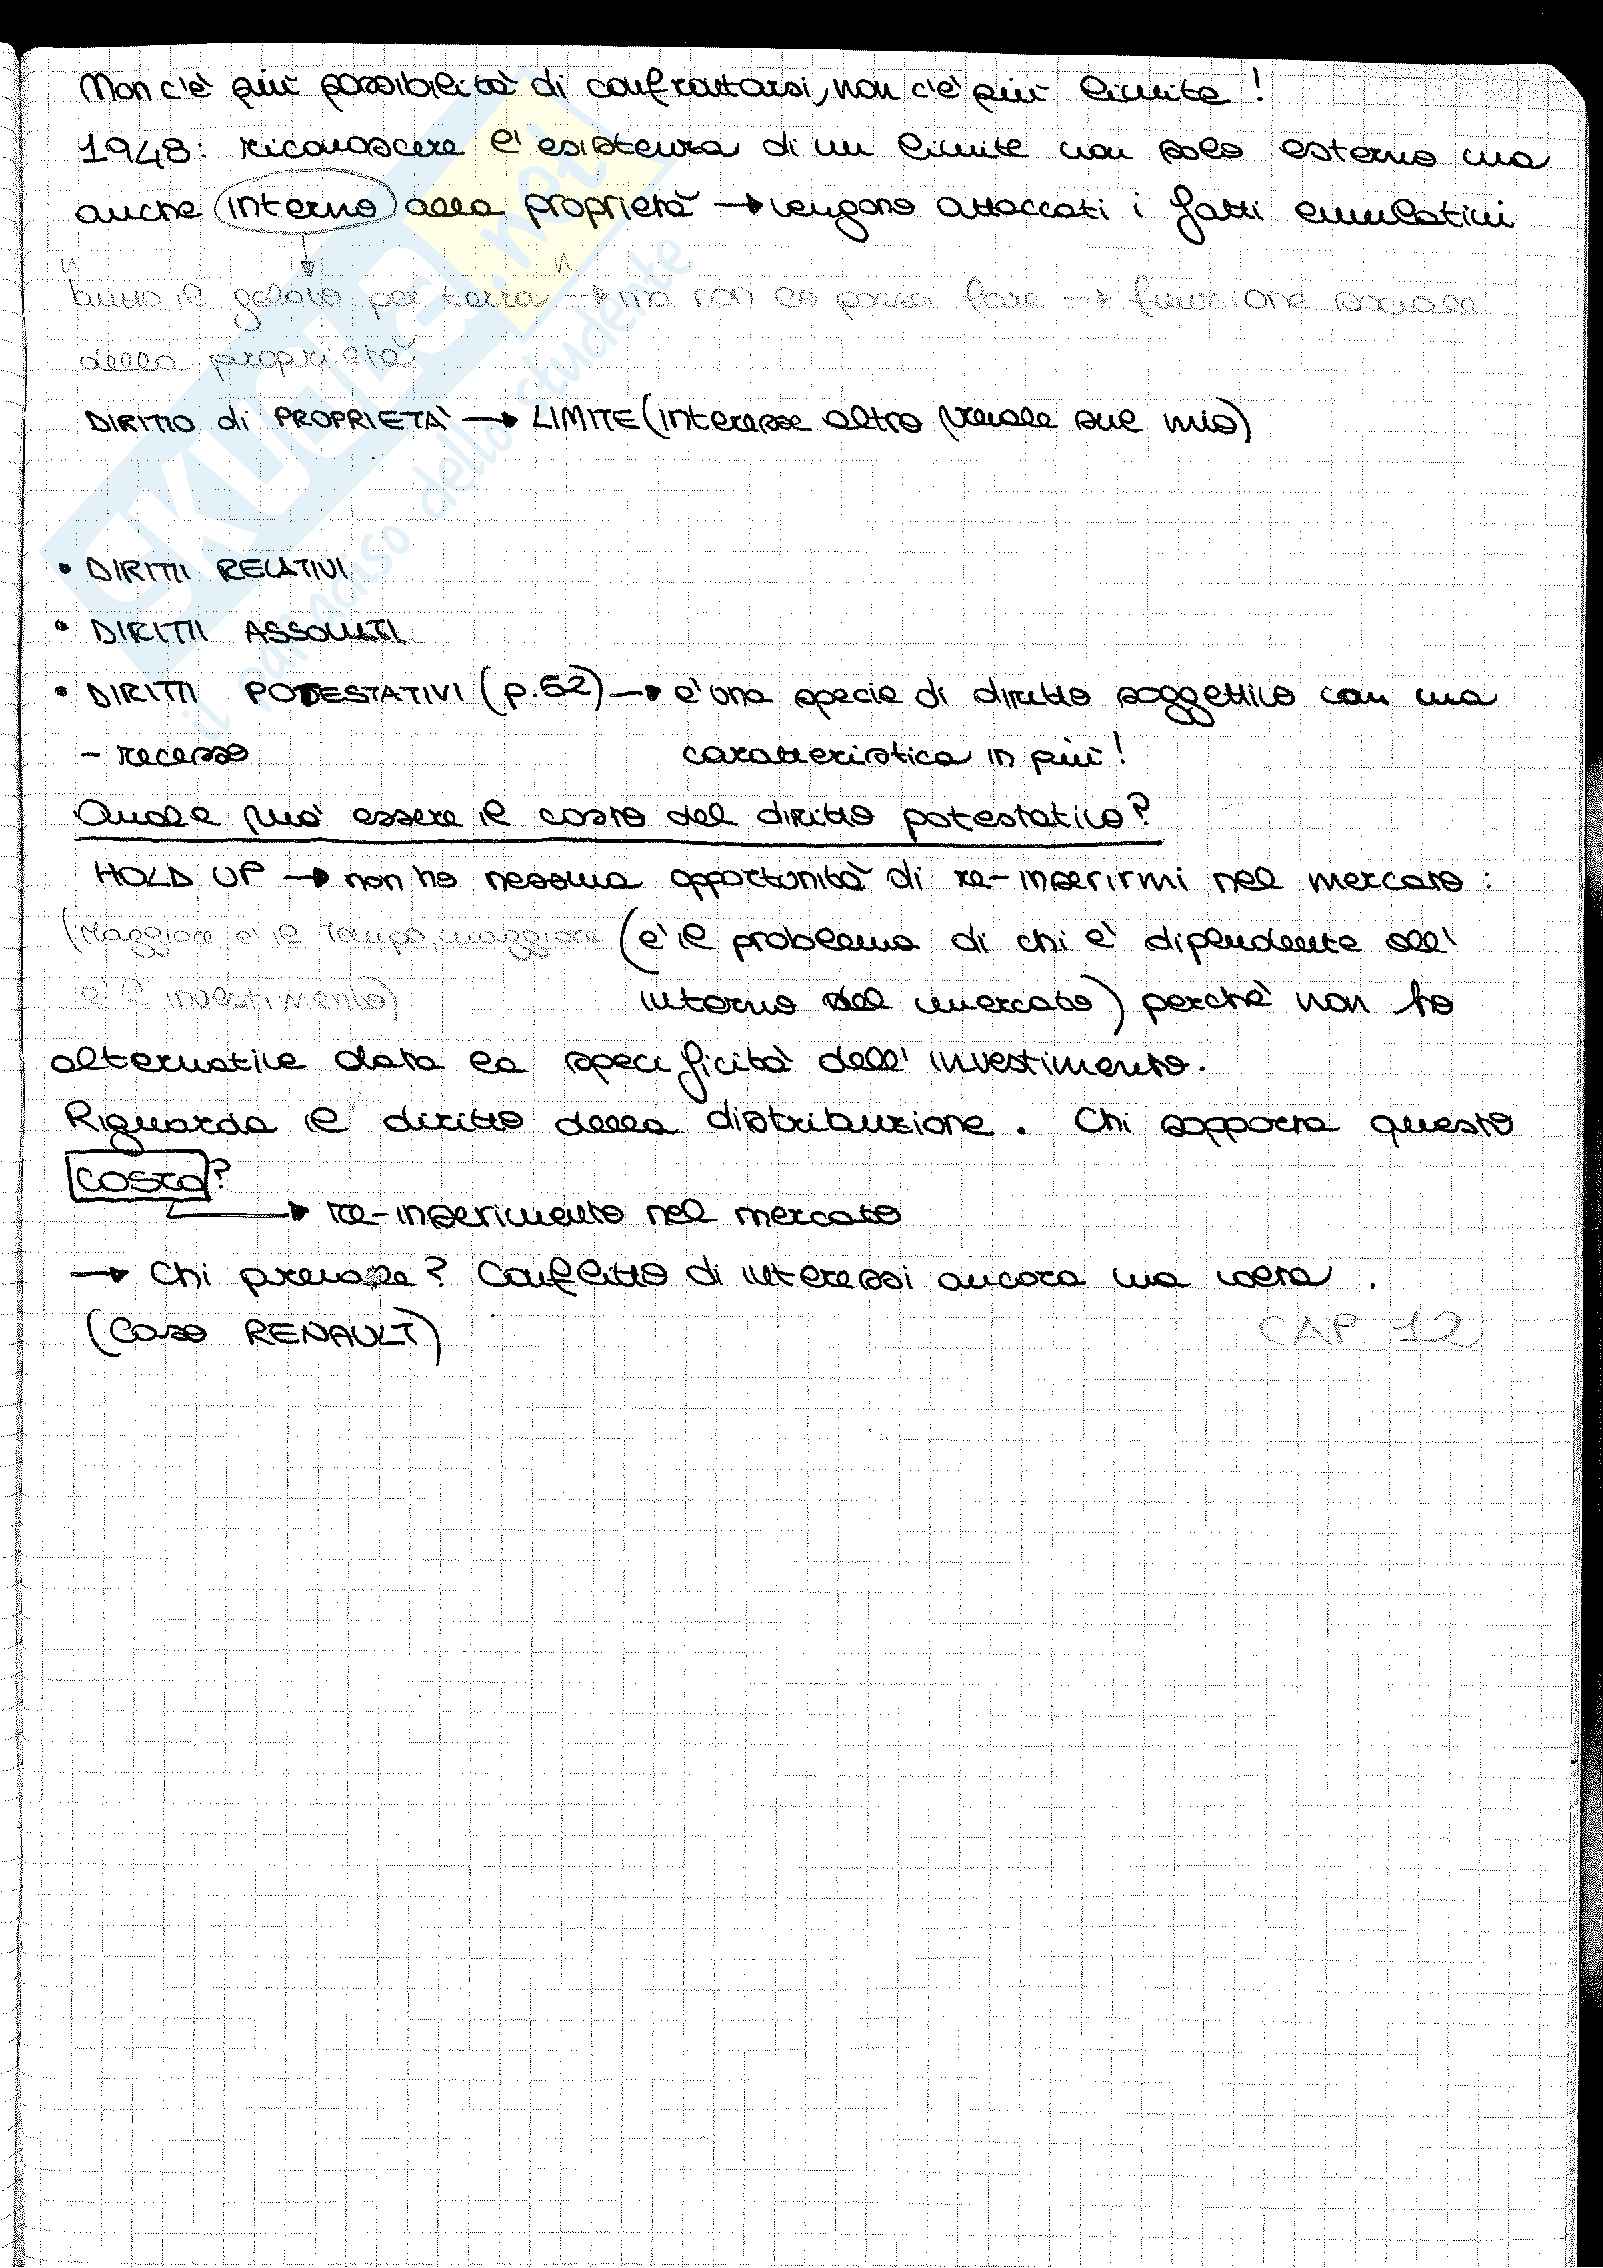 Non c'è più possibilità di confrontarsi, non c'è più limite!
1948: riconoscere l'esistenza di un limite non solo esterno ma
anche interno alla proprietà → vengono attaccati i fatti emulativi
"butto il gelato per terra" → ma non lo posso fare → funzione sociale
della proprietà
DIRITTO di PROPRIETÀ → LIMITE (interesse altro prevale sul mio)
• DIRITTI RELATIVI
• DIRITTI ASSOLUTI
• DIRITTI POTESTATIVI (p.52) → è una specie di diritto soggettivo con una
- recesso caratteristica in più!
Quale può essere il costo del diritto potestativo?
HOLD UP → non ho nessuna opportunità di re-inserirmi nel mercato:
(Maggiore è il tempo, maggiore (è il problema di chi è dipendente all'
è l'investimento) interno del mercato) perchè non ho
alternative data la specificità dell'investimento.
Riguarda il diritto della distribuzione. Chi sopporta questo
costo?
→ re-inserimento nel mercato
→ Chi prevale? Conflitto di interessi ancora una volta.
(Caso RENAULT) CAP 12
SKUOLA.net
il paradiso dello studente